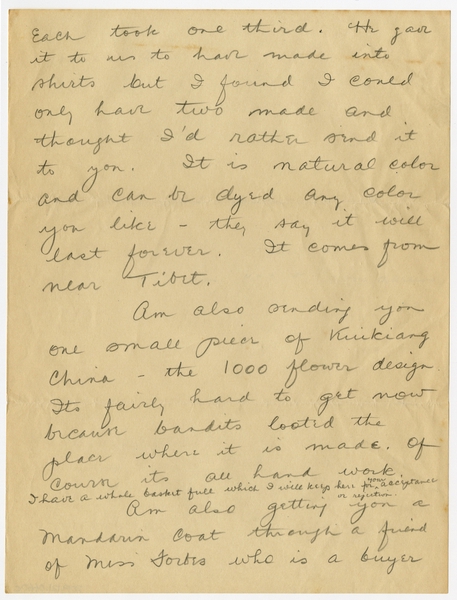 Each took one third. He gave
it to us to have made into
shirts but I found I could
only have two made and
thought I'd rather send it
to you. It is natural color
and can be dyed any color
you like - they say it will
last forever. It comes from
near Tibet.
Am also sending you
one small piece of Kiukiang
China - the 1000 flower design
Its fairly hard to get now
because bandits looted the
place where it is made. Of
course its all hand work.
I have a whole basket full which I will keep here for your acceptance
or rejection.
Am also getting you a
Mandarin Coat through a friend
of Miss Forbes who is a buyer